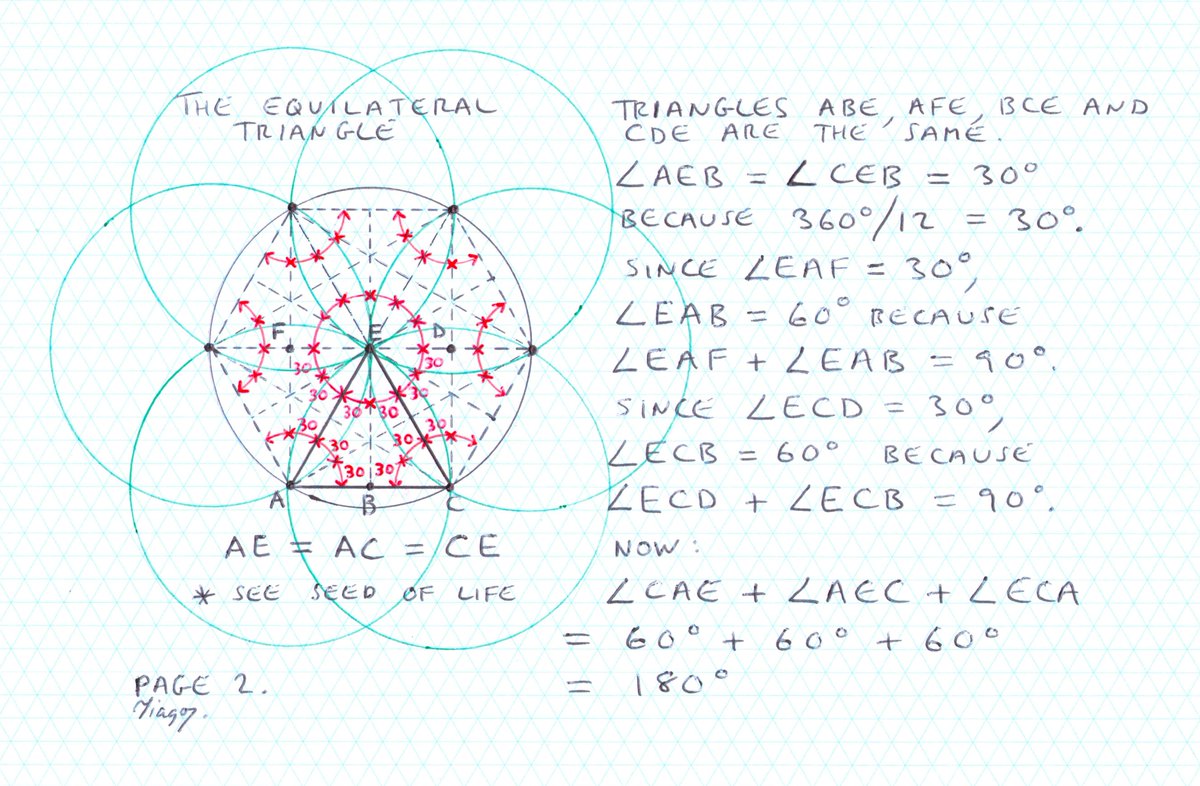 THE EQUILATERAL
TRIANGLE
F
E
D
30
30
30
30
30
30
30
30
30
30
30
30
A
B
C
AE = AC = CE
* SEE SEED OF LIFE
PAGE 2.
TRIANGLES ABE, AFE, BCE AND
CDE ARE THE SAME.
∠AEB = ∠CEB = 30°
BECAUSE 360°/12 = 30°.
SINCE ∠EAF = 30°,
∠EAB = 60° BECAUSE
∠EAF + ∠EAB = 90°.
SINCE ∠ECD = 30°,
∠ECB = 60° BECAUSE
∠ECD + ∠ECB = 90°.
NOW:
∠CAE + ∠AEC + ∠ECA
= 60° + 60° + 60°
= 180°